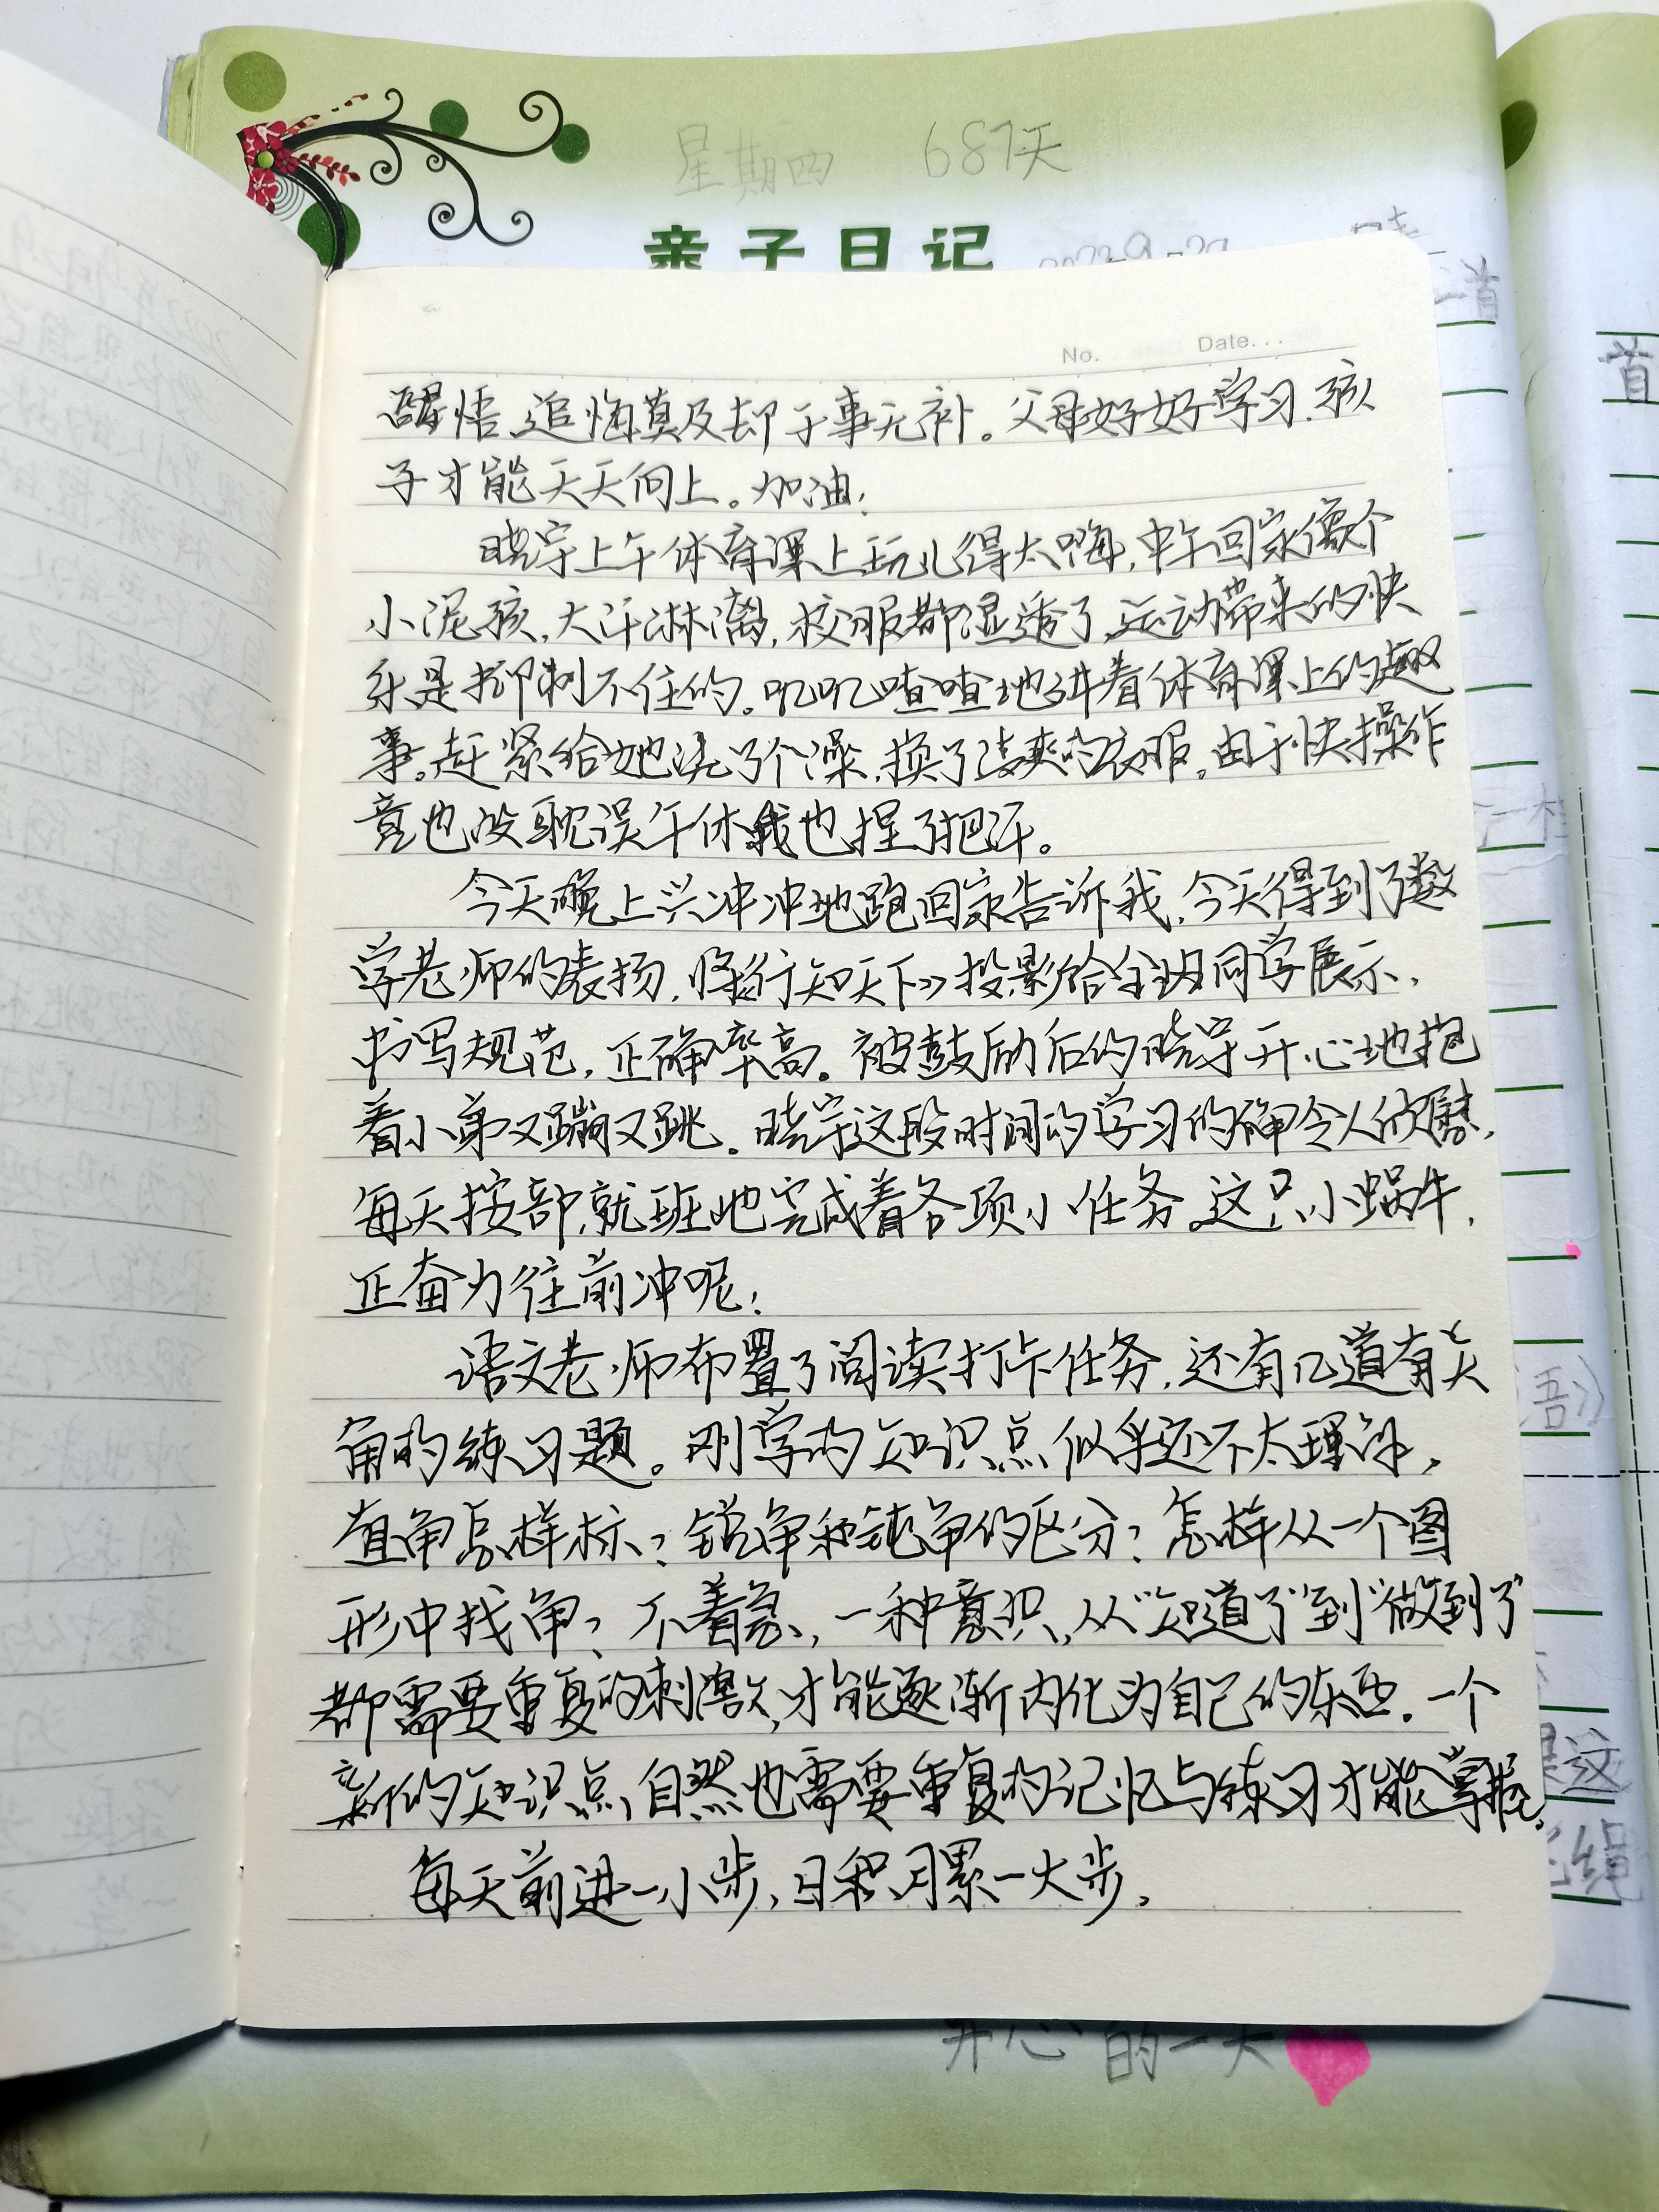 星期四 687天
亲子日记 2022-9-29
No. Date...
醒悟、追悔莫及却于事无补。父母好好学习.孩
子才能天天向上。加油!
晓宇上午体育课上玩儿得太嗨,中午回家像个
小泥孩,大汗淋漓,校服都湿透了,运动带来的快
乐是抑制不住的。叽叽喳喳地讲着体育课上的趣
事。赶紧给她洗了个澡,换了清爽的衣服。由于快操作
竟也没耽误午休我也捏了把汗。
今天晚上兴冲冲地跑回家告诉我,今天得到了数
学老师的表扬,将《行知天下》投影给全班同学展示,
书写规范,正确率高。被鼓励后的晓宇开心地抱
着小弟又蹦又跳。晓宇这段时间的学习的确令人欣慰,
每天按部就班地完成着各项小任务。这只小蜗牛,
正奋力往前冲呢!
语文老师布置了阅读打卡任务,还有几道有关
角的练习题。刚学的知识点似乎还不太理解,
直角怎样标?锐角和钝角的区分?怎样从一个图
形中找角?不着急,一种意识,从“知道了”到“做到了”
都需要重复的刺激,才能逐渐内化为自己的东西.一个
新的知识点,自然也需要重复的记忆与练习才能掌握。
每天前进一小步,日积月累一大步.
开心的一天
首
语》